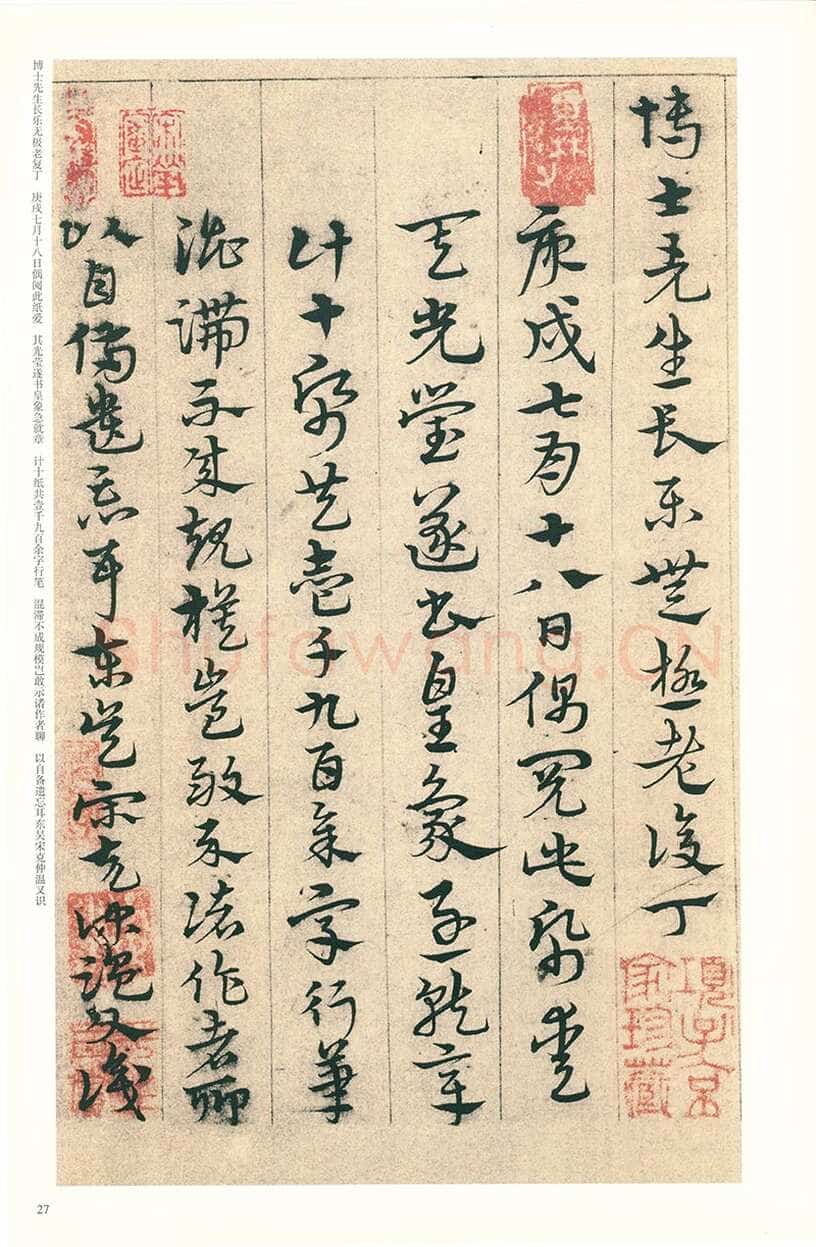 博士先生長樂無極老復丁
庚戌七月十八日偶閱此紙愛
其光瑩遂書皇象急就章
計十紙共壹千九百餘字行筆
混滯不成規模豈敢示諸作者聊
以自備遺忘耳東吳宋克仲溫又識
項子京
家珍藏
博士先生长乐无极老复丁 庚戌七月十八日偶阅此纸爱 其光莹遂书皇象急就章 计十纸共壹千九百余字行笔 混滞不成规模岂敢示诸作者聊 以自备遗忘耳东吴宋克仲温又识
Shufawang.CN
27